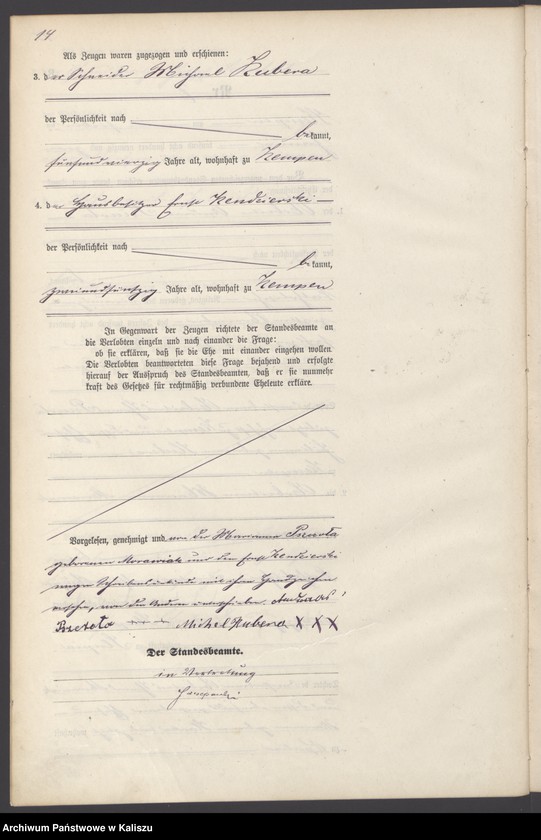 14
Als Zeugen waren zugezogen und erschienen:
3. der Schneider Michael Kubera
der Persönlichkeit nach
bekannt,
fünfundvierzig Jahre alt, wohnhaft zu Kempen
4. der Hausbesitzer Ernst Kendzierski
der Persönlichkeit nach
bekannt,
zweiundfünfzig Jahre alt, wohnhaft zu Kempen
In Gegenwart der Zeugen richtete der Standesbeamte an
die Verlobten einzeln und nach einander die Frage:
ob sie erklären, daß sie die Ehe mit einander eingehen wollen.
Die Verlobten beantworteten diese Frage bejahend und erfolgte
hierauf der Ausspruch des Standesbeamten, daß er sie nunmehr
kraft des Gesetzes für rechtmäßig verbundene Eheleute erkläre.
Vorgelesen, genehmigt und von der Marianna
geborenen Morawiak und dem Ernst Kendzierski
wegen Schreibens mit ihren Handzeichen
versehen, von den Andern unterschrieben.
Michel Kubera X X X
Der Standesbeamte.
in Vertretung
Archiwum Państwowe w Kaliszu